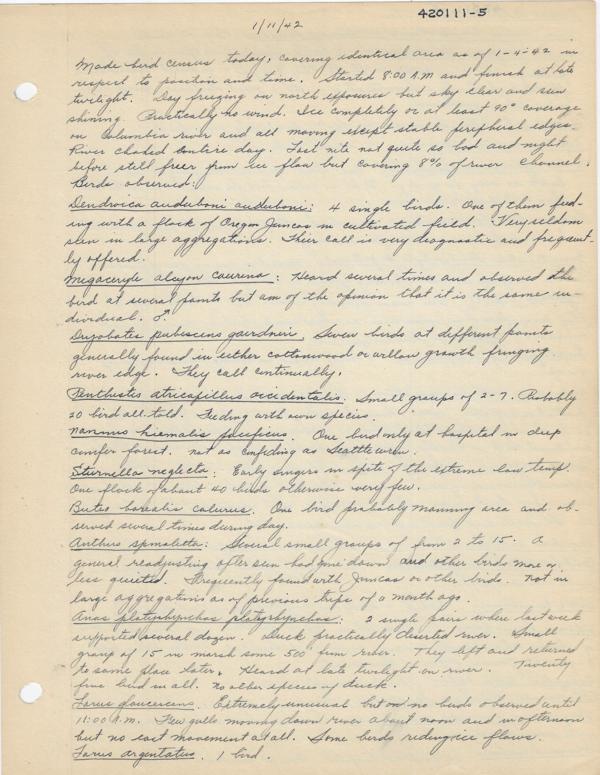 420111-5
1/11/42
Made bird census today, covering identical area as of 1-4-42 in
respect to position and time. Started 8:00 A.M and finish at late
twilight. Day freezing on north exposures but sky clear and sun
shining. Practically no wind. Ice completely or at least 90° coverage
on Columbia river and all moving except stable peripheral edges.
River choked entire day. Last nite not quite so bad and night
before still freer from ice flow but covering 8% of river channel.
Birds observed:
Dendroica auduboni auduboni: 4 single birds. One of them feed-
ing with a flock of Oregon Juncos in cultivated field. Very seldom
seen in large aggregations. Their call is very diagnostic and frequent-
ly offered.
Megaceryle alcyon caurina: Heard several times and observed the
bird at several points but am of the opinion that it is the same in-
dividual. ♂.
Dryobates pubescens gairdneri. Seven birds at different points
generally found in either cottonwood or willow growth fringing
river edge. They call continually.
Penthestes atricapillus occidentalis. Small groups of 2-7. Probably
20 bird all told. Feeding with own species.
Nannus hiemalis pacificus. One bird only at hospital in deep
conifer forest. not as confiding as Seattle wren.
Sturnella neglecta: Early singers in spite of the extreme low temp.
One flock of about 40 birds otherwise very few.
Buteo borealis calurus. One bird probably manning area and ob-
served several times during day.
Anthus spinoletta: Several small groups of from 2 to 15. A
general readjusting after sun had gone down and other birds more or
less quieted. Frequently found with Juncos or other birds. not in
large aggregations as of previous trips of a month ago.
Anas platyrhynchos platyrhynchos: 2 single pairs where last week
supported several dozen. Duck practically deserted river. Small
group of 15 in marsh some 500' from river. They left and returned
to same place later. Heard at late twilight on river. Twenty
five bird in all. no other species of duck.
Larus glaucescens. Extremely unusual but no birds observed until
11:00 A.M. Few gulls moving down river about noon and in afternoon
but no east movement at all. Some birds riding ice flows.
Larus argentatus. 1 bird.